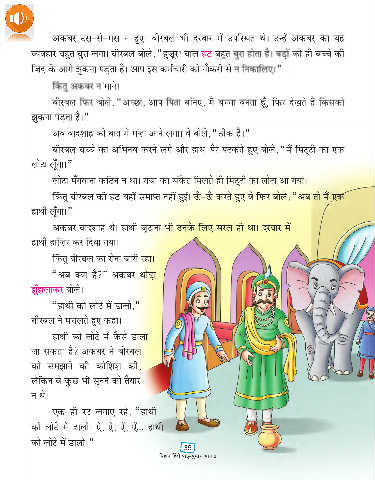 अकबर टस-से-मस न हुए। बीरबल भी दरबार में उपस्थित थे। उन्हें अकबर का यह
व्यवहार बहुत बुरा लगा। बीरबल बोले, "हुज़ूर! बाल हठ बहुत बुरा होता है। बड़ों को ही बच्चे की
जिद के आगे झुकना पड़ता है। आप इस कर्मचारी को नौकरी से न निकालिए।"
किंतु अकबर न माने।
बीरबल फिर बोले, "अच्छा, आप पिता बनिए, मैं बच्चा बनता हूँ, फिर देखते हैं किसको
झुकना पड़ता है।"
अब बादशाह को बात में मज़ा आने लगा। वे बोले, "ठीक है।"
बीरबल बच्चे का अभिनय करने लगे और हाथ-पैर पटकते हुए बोले, "मैं मिट्टी का एक
लोटा लूँगा।"
लोटा मँगवाना कठिन न था। राजा का संकेत मिलते ही मिट्टी का लोटा आ गया।
किंतु बीरबल की हठ यहीं समाप्त नहीं हुई। ऊँ-ऊँ करते हुए वे फिर बोले, "अब तो मैं एक
हाथी लूँगा।"
अकबर बादशाह थे। हाथी जुटाना भी उनके लिए सरल ही था। दरबार में
हाथी हाज़िर कर दिया गया।
किंतु बीरबल का रोना जारी रहा।
"अब क्या है?" अकबर थोड़ा
झुँझलाकर बोले।
"हाथी को लोटे में डालो,"
बीरबल ने मचलते हुए कहा।
हाथी को लोटे में कैसे डाला
जा सकता है? अकबर ने बीरबल
को समझाने की कोशिश की,
लेकिन वे कुछ भी सुनने को तैयार
न थे।
एक ही रट लगाए रहे, "हाथी
को लोटे में डालो। ऐं, ऐं, ऐं, ऐं... हाथी
को लोटे में डालो।"